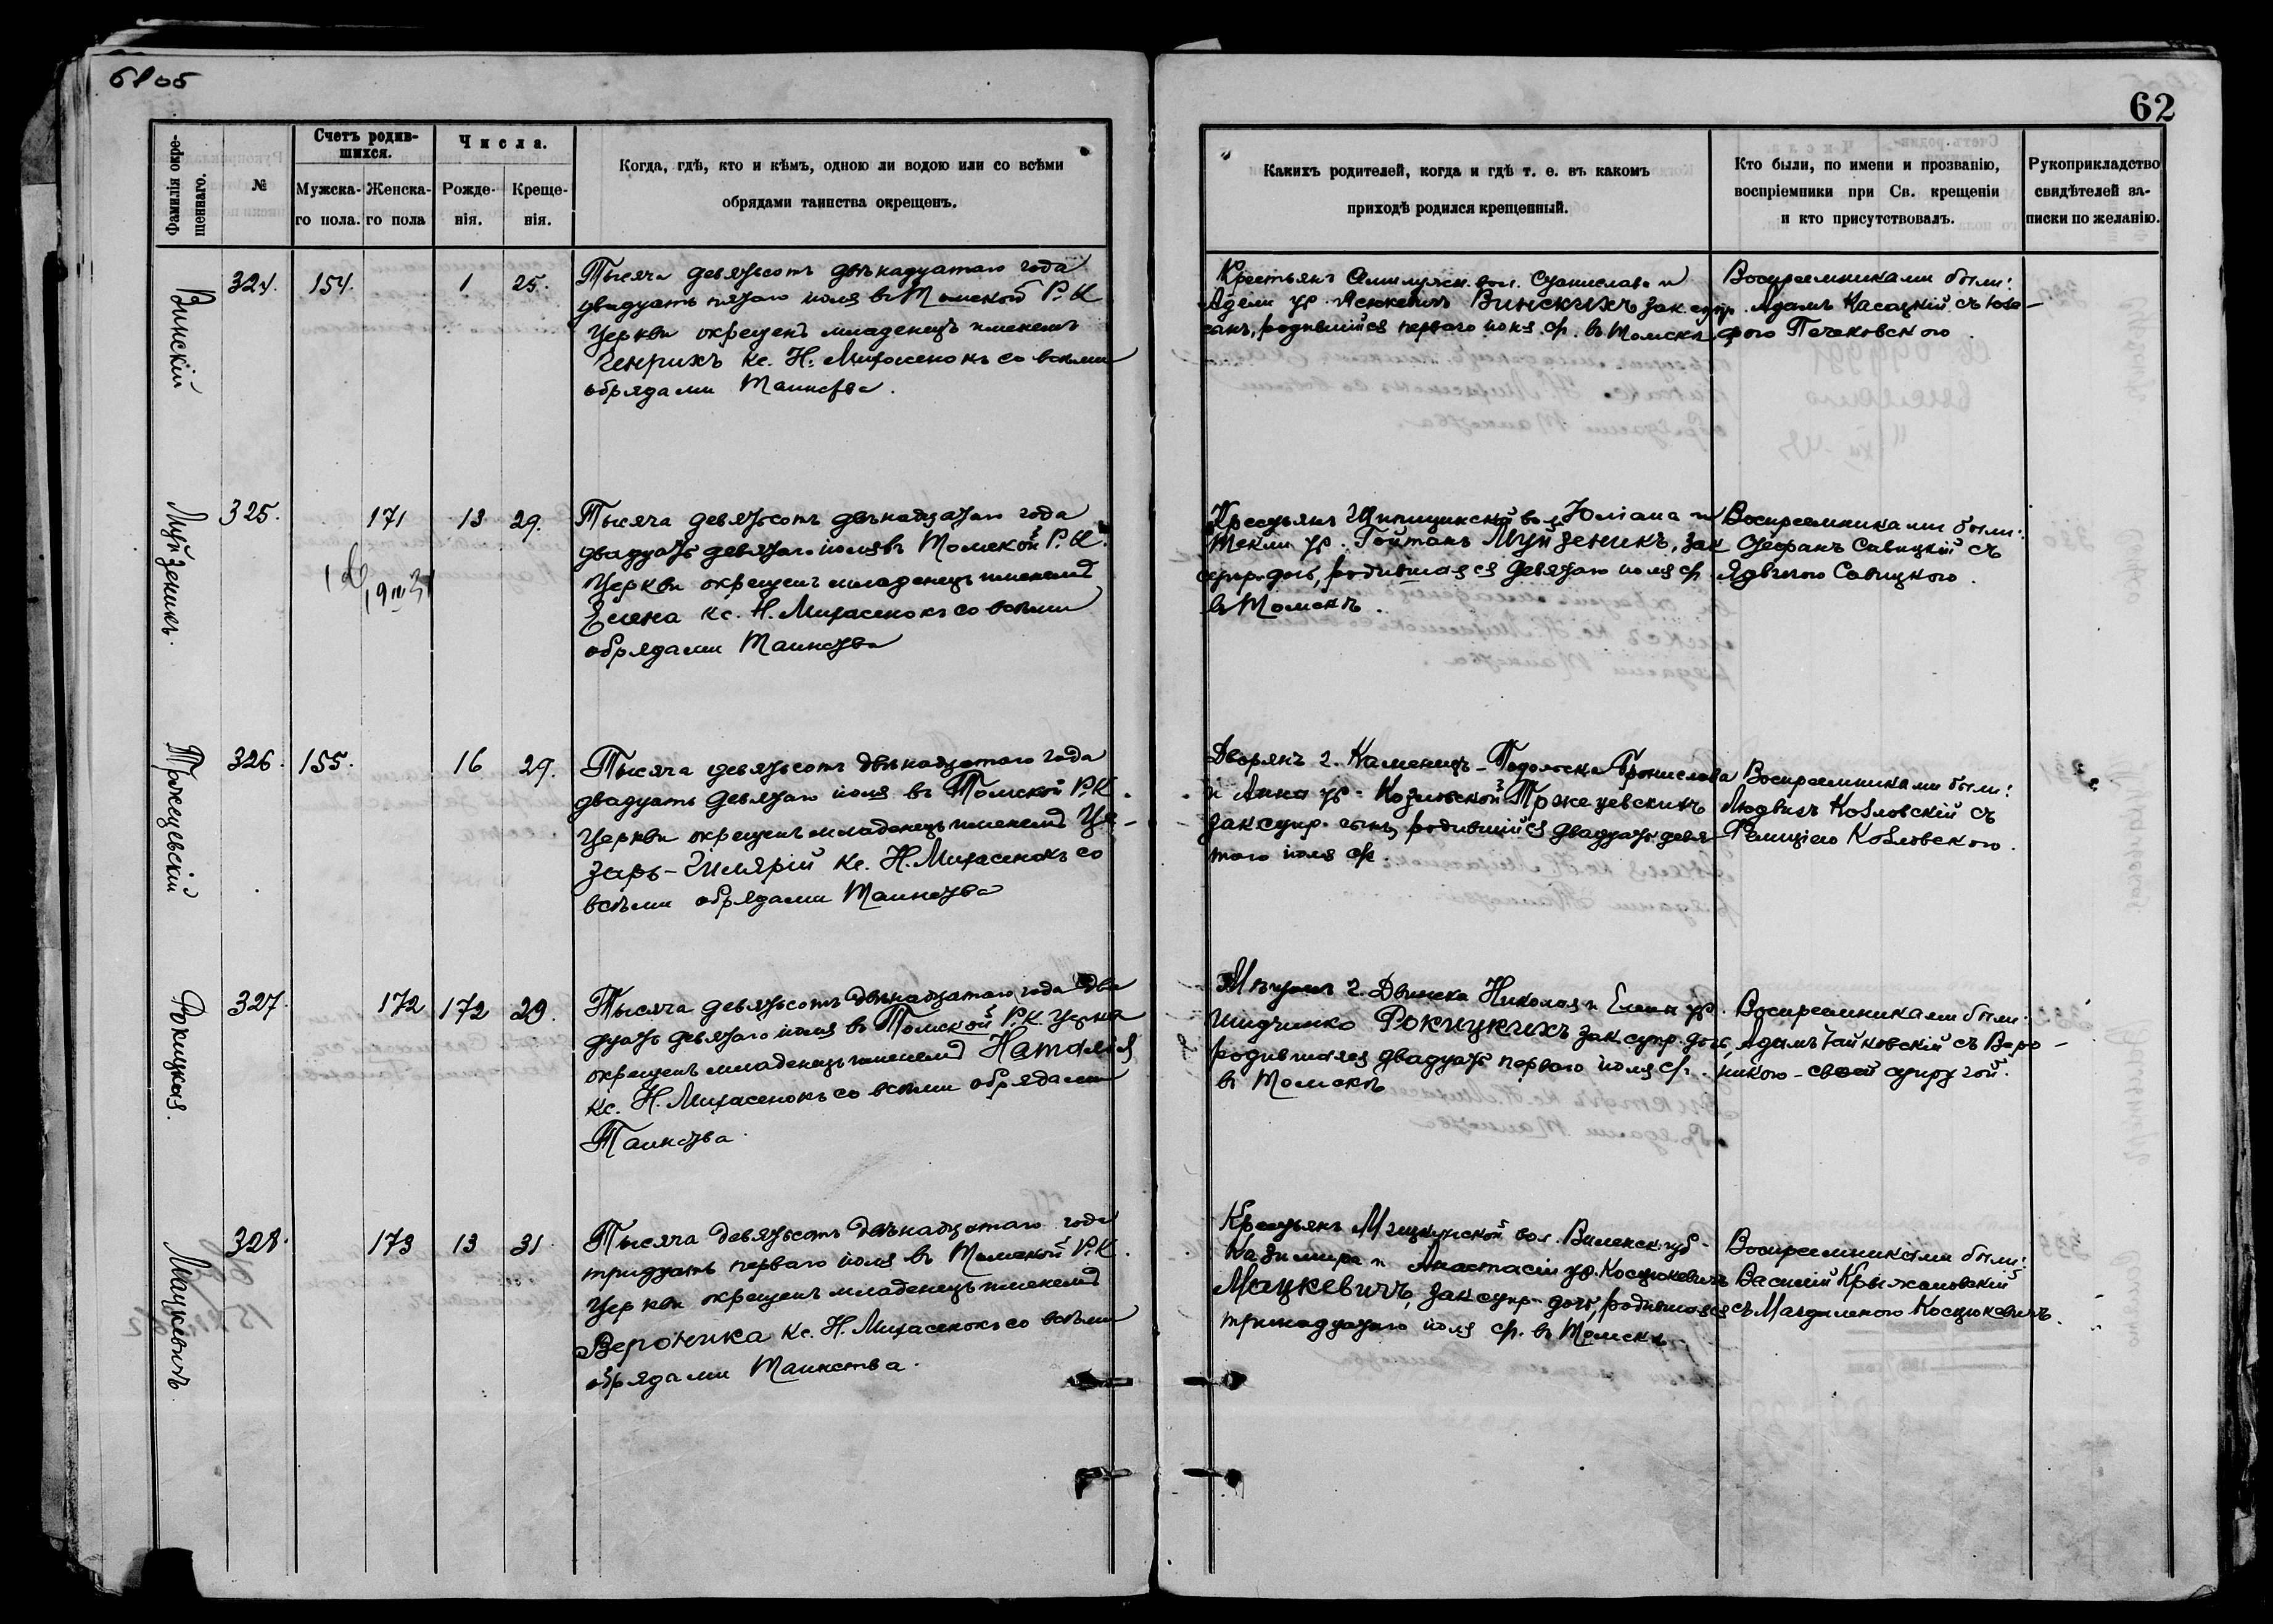 6805
62
Фамилія окре-
щеннаго.
№
Счетъ родив-
шихся.
Мужска-
го пола.
Женска-
го пола
Числа.
Рожде-
нія.
Креще-
нія.
Когда, гдѣ, кто и кѣмъ, одною ли водою или со всѣми
обрядами таинства окрещенъ.
Какихъ родителей, когда и гдѣ т. е. въ какомъ
приходѣ родился крещенный.
Кто были, по имени и прозванію,
воспріемники при Св. крещеніи
и кто присутствовалъ.
Рукоприкладство
свидѣтелей за-
писки по желанію.
Винскій
324.
154.
1
25.
Тысяча девятьсотъ двѣнадцатаго года
двадцать пятаго іюля въ Томской Р. К.
Церкви окрещенъ младенецъ именемъ
Генрихъ кс. Н. Михасенокъ со всѣми
обрядами Таинства.
Крестьянъ вол. Станислава и
Адели ур. Яснкевичъ Винскихъ зак. супр.
сынъ, родившійся перваго іюля с/г. въ Томскѣ
Воспреемниками были:
Адамъ Касацкій съ Юзе-
фою Печковского.
Муйзеникъ.
325.
171
13
29.
Тысяча девятьсотъ двѣнадцатаго года
двадцать девятаго іюля въ Томской Р. К.
Церкви окрещенъ младенецъ именемъ
Елена кс. Н. Михасенокъ со всѣми
обрядами Таинства
Крестьянъ вол. Юліана и
Текли ур. Гойтанъ Муйзеникъ, зак
супр. дочь, родившаяся девятаго іюля с/г.
въ Томскѣ.
Воспреемниками были:
Стефанъ Савицкій съ
Ядвигою Савицкого.
Тржецевскій
326.
155.
16
29.
Тысяча девятьсотъ двѣнадцатаго года
двадцать девятаго іюля въ Томской Р.К.
Церкви окрещенъ младенецъ именемъ Це-
зарь-Гилярій кс. Н. Михасенокъ со
всѣми обрядами Таинства
Дворянъ г. Каменецъ-Подольска Бронислава
и Анны ур. Козловской Тржецевскихъ
зак супр. сынъ, родившійся двадцать девя
таго іюля с/г.
Воспреемниками были:
Людвигъ Козловскій съ
Фелиціею Козловского.
Рокицкая.
327.
172
172
29.
Тысяча девятьсотъ двѣнадцатаго года два
дцать девятаго іюля въ Томской Р.К. Церкви
окрещенъ младенецъ именемъ Наталія
кс. Н. Михасенокъ со всѣми обрядами
Таинства.
Мѣщанъ г. Двинска Николая и Елены ур.
Шидчинко Рокицкихъ зак. супр. дочь,
родившаяся двадцать перваго іюля с/г.
въ Томскѣ
Воспреемниками были:
Адамъ Гайковскій съ Веро-
никою-своей супругой.
Мацкевичъ
328.
173
13
31
Тысяча девятьсотъ двѣнадцатаго года
тридцать перваго іюля въ Томской Р.К.
Церкви окрещенъ младенецъ именемъ
Вероника кс. Н. Михасенокъ со всѣми
обрядами Таинства.
Крестьянъ вол. Виленск. губ.
Кадимира и Анастасіи ур. Косцюкевичъ
Мацкевичъ, зак супр. дочь, родившаяся
тринадцатаго іюля с/г. въ Томскѣ.
Воспреемниками были:
Василій Крыжановскій
съ Магдаленою Косцюкевичъ.